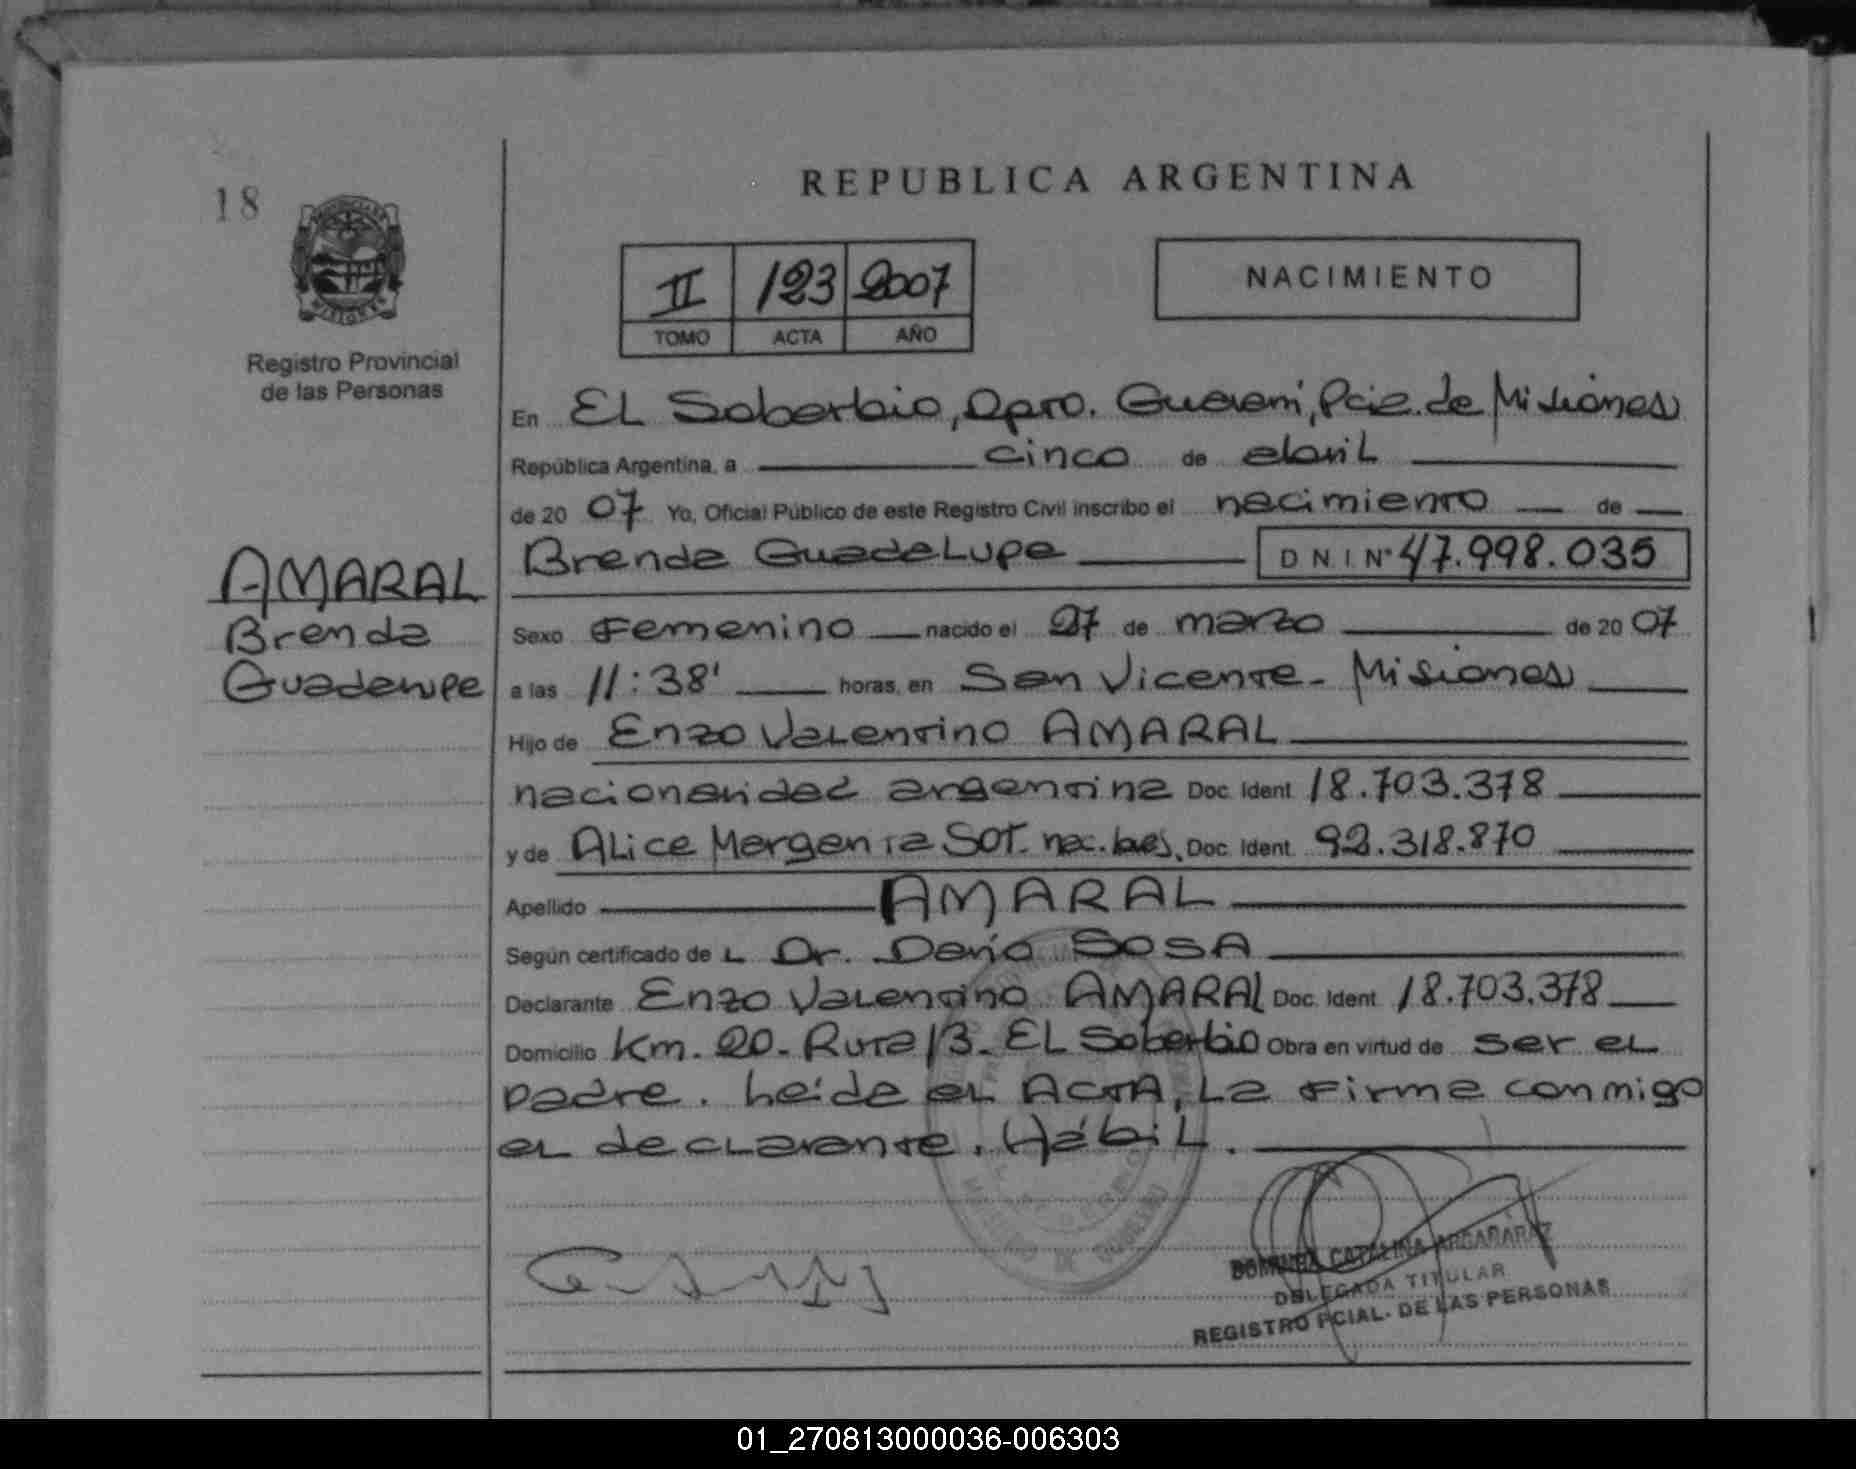 18
REPUBLICA ARGENTINA
II 123 2007
TOMO ACTA AÑO
NACIMIENTO
Registro Provincial
de las Personas
En EL Soberbio, Dpto. Guaraní, Pcia. de Misiones
República Argentina, a cinco de abril
de 20 07 Yo, Oficial Público de este Registro Civil inscribo el nacimiento de
Brenda Guadelupe D N I N° 47.998.035
AMARAL
Brenda
Guadelupe
Sexo Femenino nacido el 27 de marzo de 20 07
a las 11:38' horas, en San Vicente - Misiones
Hijo de Enzo Valentino AMARAL
nacionalidad argentina Doc. Ident. 18.703.378
y de Alice Margarita SOT. nac. bras. Doc. Ident. 92.318.870
Apellido AMARAL
Según certificado de L Dr. Darío SOSA
Declarante Enzo Valentino AMARAL Doc. Ident. 18.703.378
Domicilio Km. 20 - Ruta 13 - EL Soberbio Obra en virtud de ser el
padre. Leída el ACTA, La firma conmigo
el declarante. Hábil.
CATALINA ARGAÑARAZ
DELEGADA TITULAR
REGISTRO PCIAL. DE LAS PERSONAS
01_270813000036-006303